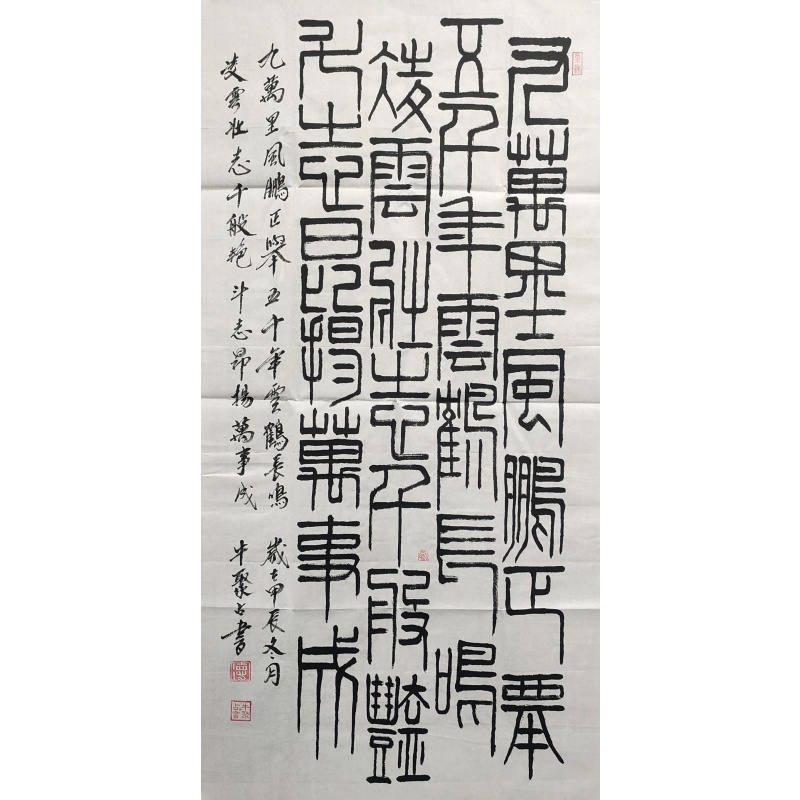 九萬里風鵬正舉
五千年雲鶴長鳴
凌雲壯志千般豔
斗志昂揚萬事成
九萬里風鵬正舉五千年雲鶴長鳴 歲在甲辰冬月
凌雲壯志千般艳斗志昂揚萬事成 牛聚占書